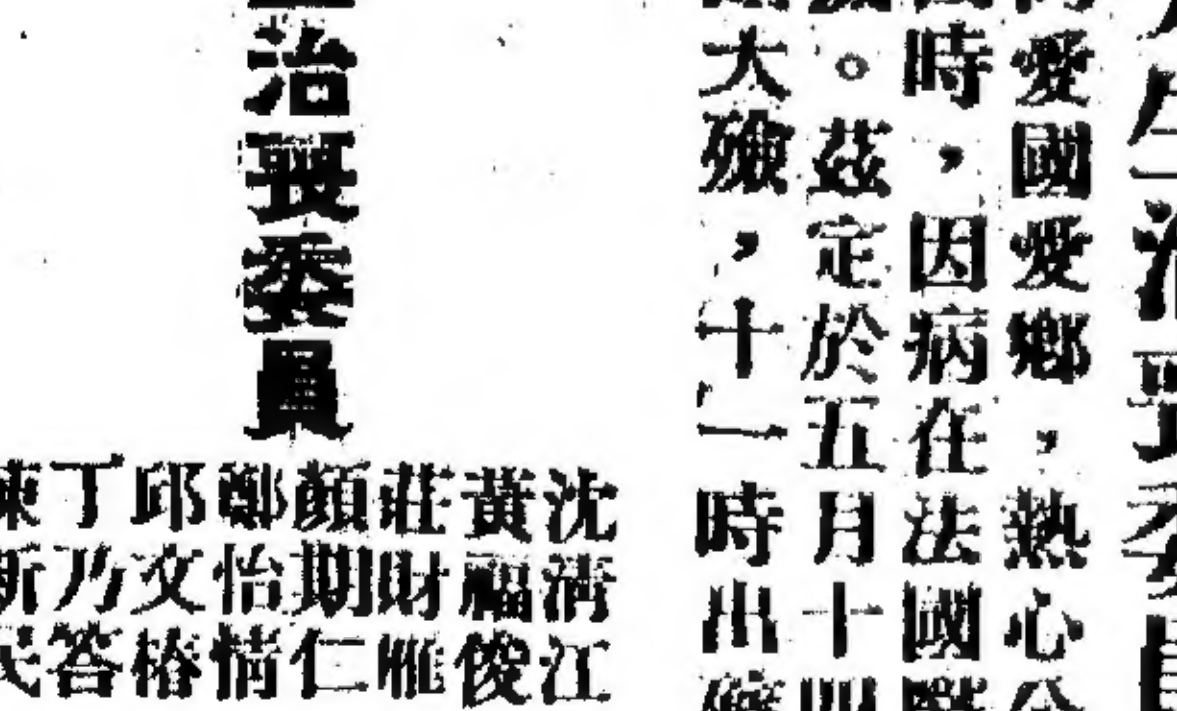 愛國愛鄉，熱心公
時，因病在法國醫
。茲定於五月十四
大殮，十一時出殯
治喪委員
沈清江
黃福俊
莊財
顏期仁
鄭怡情
邱文椿
丁乃答
陳新民